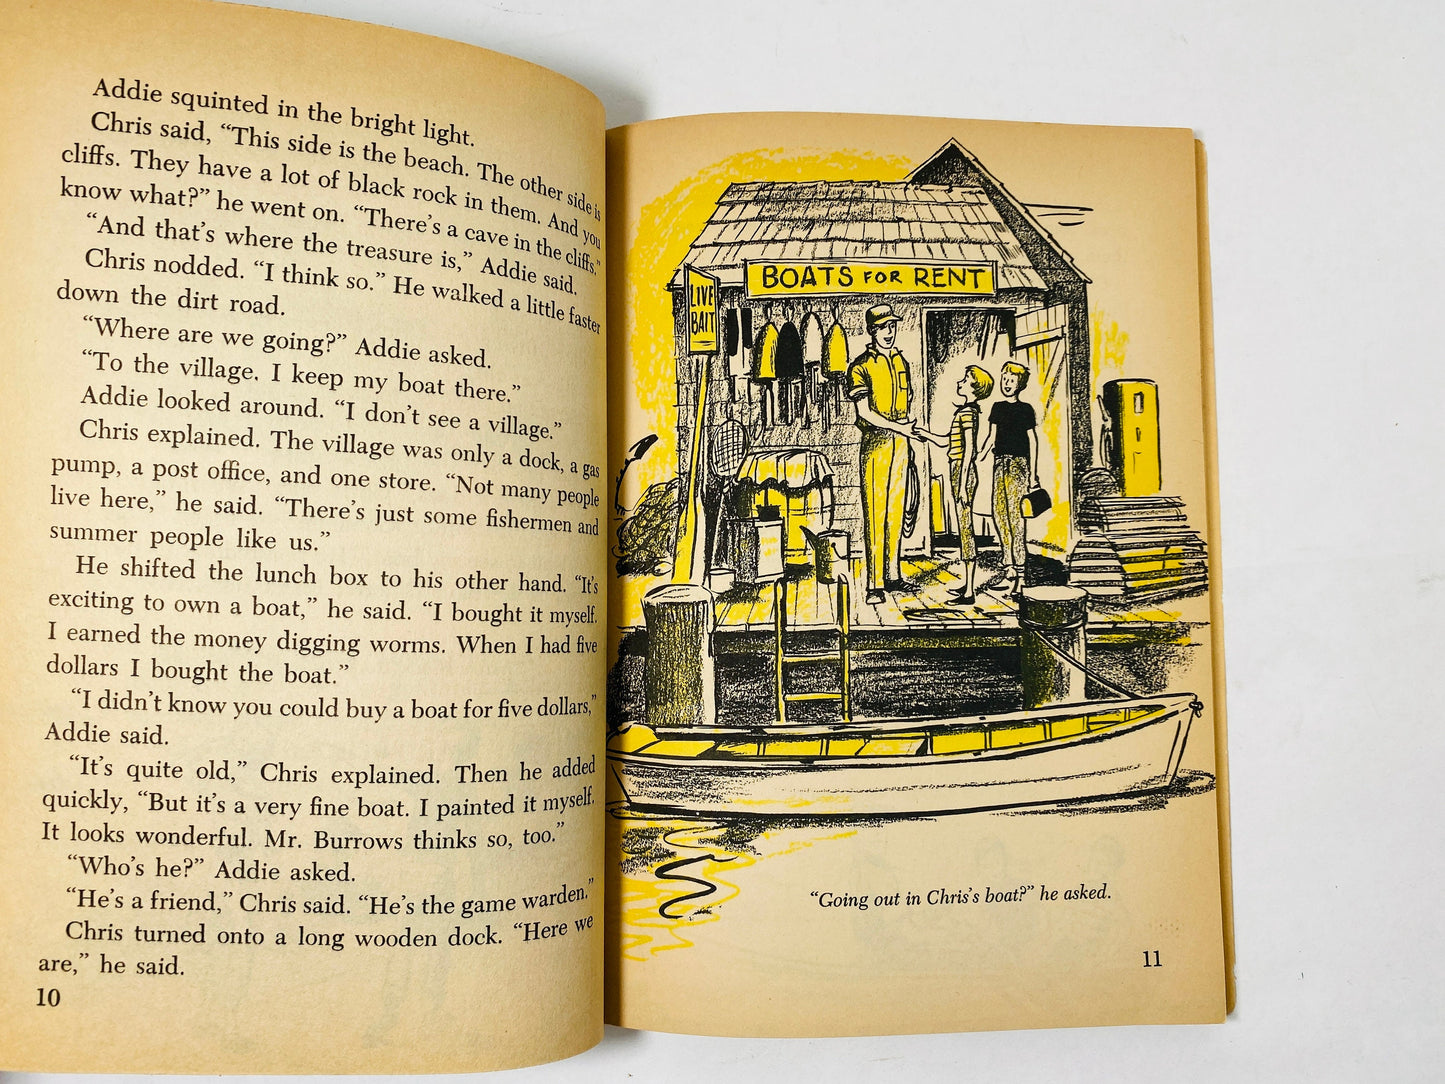 Addie squinted in the bright light.
Chris said, “This side is the beach. The other side is
cliffs. They have a lot of black rock in them. And you
know what?” he went on. “There’s a cave in the cliffs.”
“And that’s where the treasure is,” Addie said.
Chris nodded. “I think so.” He walked a little faster
down the dirt road.
“Where are we going?” Addie asked.
“To the village. I keep my boat there.”
Addie looked around. “I don’t see a village.”
Chris explained. The village was only a dock, a gas
pump, a post office, and one store. “Not many people
live here,” he said. “There’s just some fishermen and
summer people like us.”
He shifted the lunch box to his other hand. “It’s
exciting to own a boat,” he said. “I bought it myself.
I earned the money digging worms. When I had five
dollars I bought the boat.”
“I didn’t know you could buy a boat for five dollars,”
Addie said.
“It’s quite old,” Chris explained. Then he added
quickly, “But it’s a very fine boat. I painted it myself.
It looks wonderful. Mr. Burrows thinks so, too.”
“Who’s he?” Addie asked.
“He’s a friend,” Chris said. “He’s the game warden.”
Chris turned onto a long wooden dock. “Here we
are,” he said.
10
BOATS FOR RENT
LIVE
BAIT
“Going out in Chris’s boat?” he asked.
11